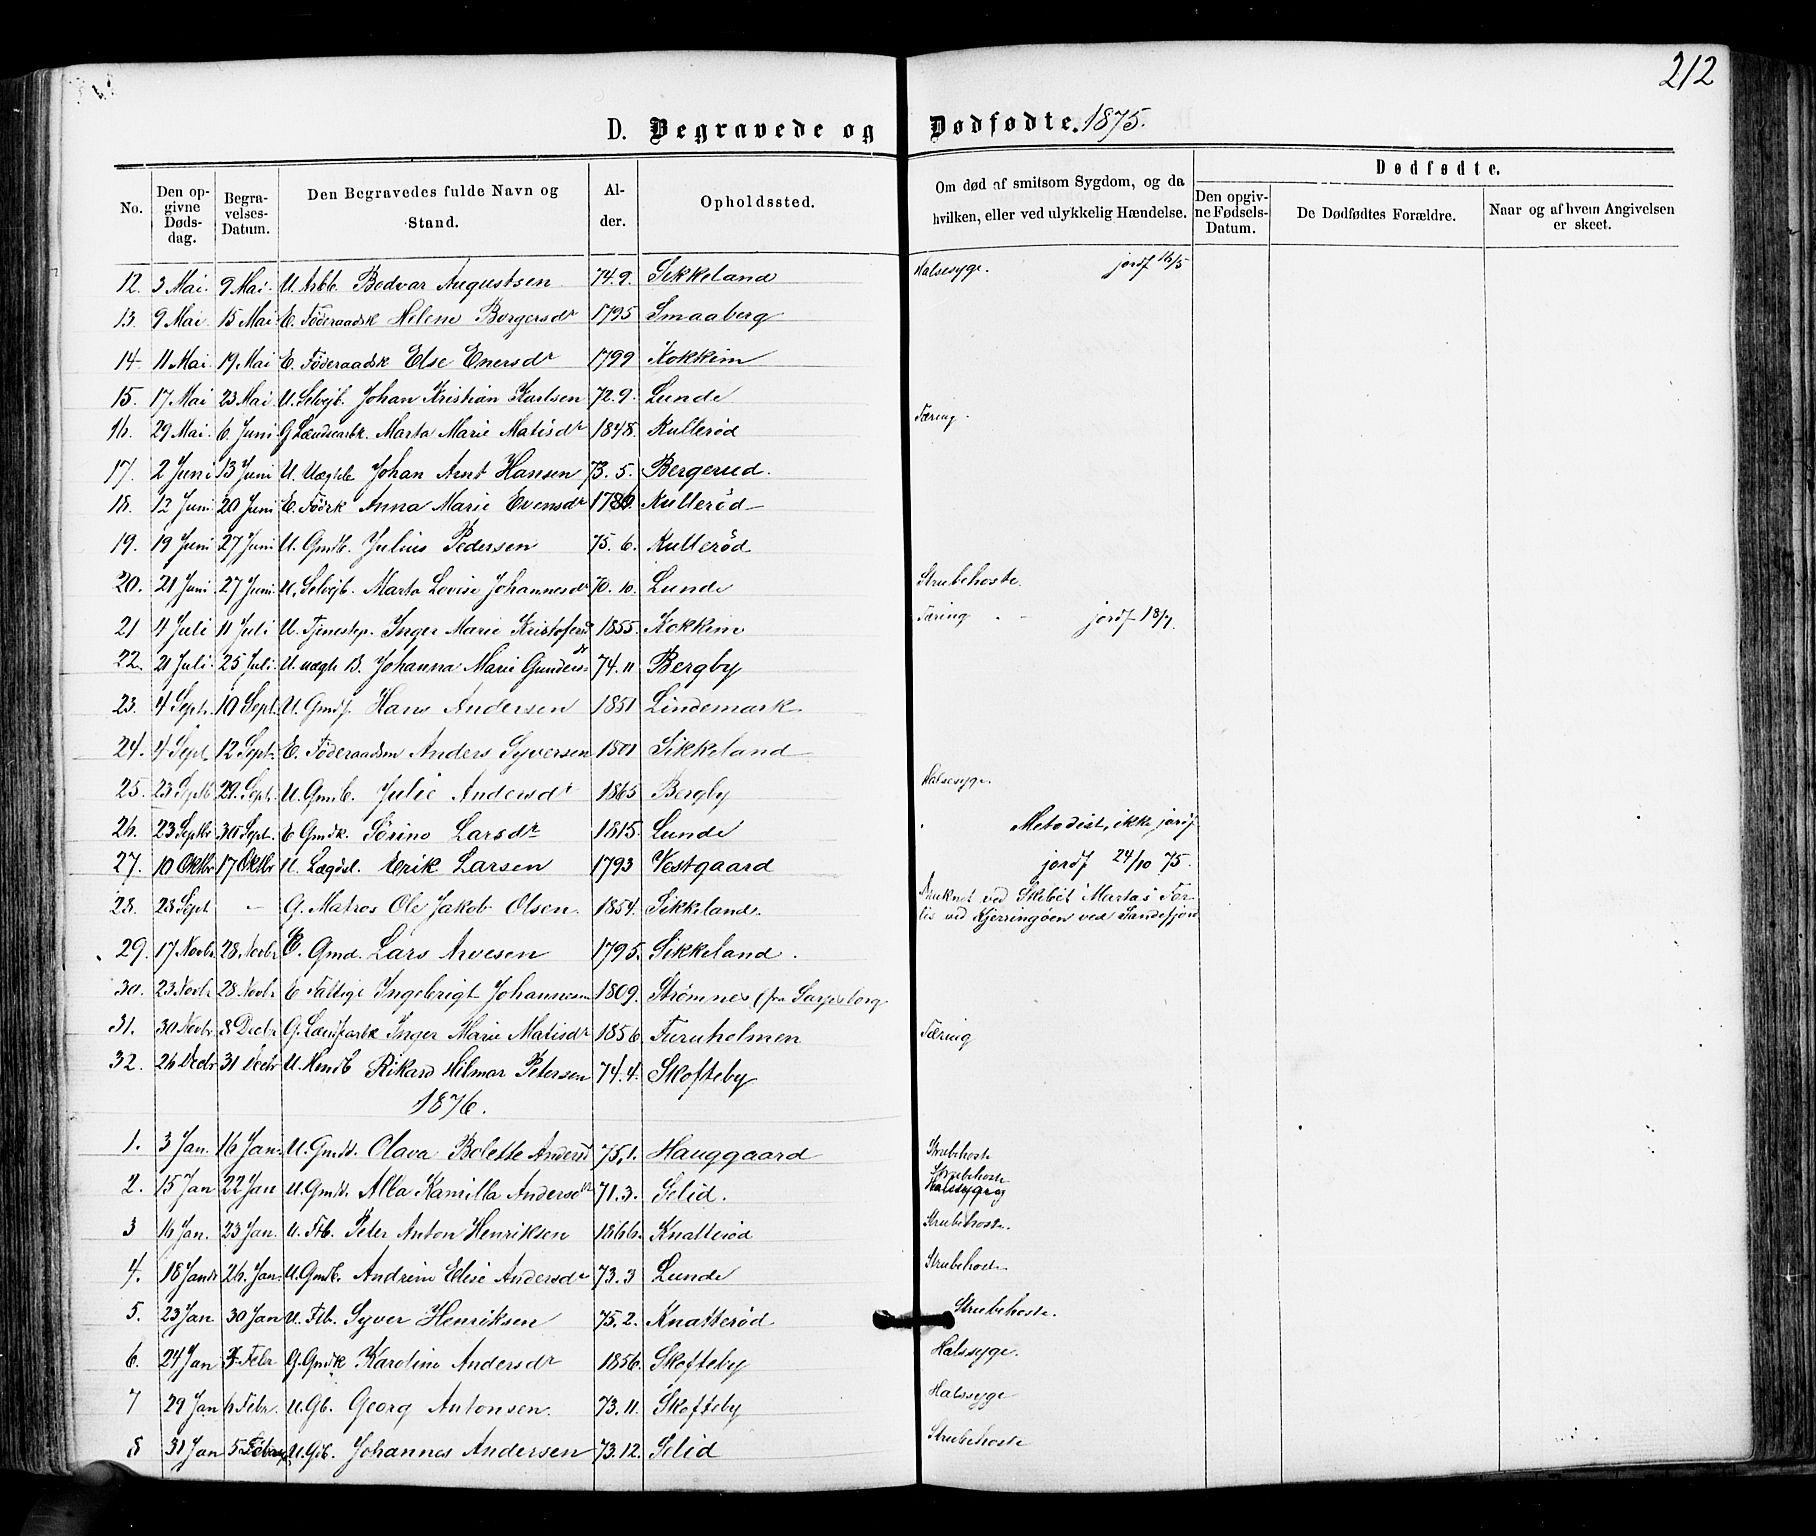 212
D. Begravede og Dødfødte. 1875.
No. | Den opgivne Dødsdag. | Begravelses-Datum. | Den Begravedes fulde Navn og Stand. | Alder. | Opholdssted. | Om død af smitsom Sygdom, og da hvilken, eller ved ulykkelig Hændelse. | Dødfødte. | Den opgivne Fødsels-Datum. | De Dødfødtes Forældre. | Naar og af hvem Angivelsen er skeet.
12. 3 Mai. 9 Mai. U. Arbb. Bedvar Augustsen 74.9. Sikkeland Halsesyge. jordf 16/5
13. 9 Mai. 15 Mai E. Føderaadsk Helene Borgersdr 1795 Smaaberg
14. 11 Mai. 19 Mai E. Føderaadsk Else Enersdr 1799 Kokkim
15. 17 Mai 23 Mai U. Selvjb. Johan Kristian Karlsen 72.9. Lunde
16. 29 Mai. 6 Juni G. Marta Marie Matisdr 1848. Kullerød Tæring.
17. 2 Juni 13 Juni U. Uægte Johan Arnt Hansen 73.5. Bergerud.
18. 12 Juni 20 Juni E. Fødrk Anna Marie Evensdr Kullerød
19. 19 Juni 27 Juni U. Gmdb. Julius Pedersen 75.6. Kullerød
20. 21 Juni 27 Juni U. Selvjb. Marta Lovise Johannesdr 70.10. Lunde Strubehoste.
21 4 Juli 11 Juli U. Tjenestep. Inger Marie Kristofersdr 1855. Kokkim Tæring jordf 18/7.
22. 21 Juli. 25 Juli U. uægte B. Johanna Marie Gundersdr 74.11 Bergby
23. 4 Sept. 10 Sept. U. Gmdf. Hans Andersen 1851 Lindemark
24. 4 Sept 12 Sept. E. Føderaadsm Anders Syversen 1801 Sikkeland
25. 23 Septb 29. Sept. U. Gmdb. Julie Andersdr 1865 Bergby Halsesyge.
26. 23 Septbr 30 Sept. E Gmdk. Sørine Larsdr 1815. Lunde Metodist, ikke jordf
27. 10 Oktbr 17 Oktbr U. Lægdsl. Erik Larsen 1793 Vestgaard jordf 24/10 75.
28. 28 Sept – G. Matros Ole Jakob Olsen. 1854. Sikkeland. Druknet ved Skibet "Martas" Forlis ved Kjerringøen ved Sandefjord
29. 17 Novbr. 28 Novbr E. Gmd. Lars Arvesen 1795. Sikkeland.
30. 23 Novbr 28 Novbr E Fattige Ingebrigt Johannesen 1809. Strømnes (fra Sarpsborg
31. 30 Novbr. 8 Decbr G. Inger Marie Matisdr 1856. Furuholmen Tæring
32. 26 Decbr 31 Decbr U. Hmdb Rikard Hilmar Petersen 74.4. Skofteby
1876.
1. 3 Jan. 16 Jan. U. Gmdb. Olava Bolette Andersd 75.1. Hauggaard Strubehoste
2. 15 Jan 22 Jan U. Gmdb. Alba Kamilla Andersdr 71.3. Selid. Strubehoste Halssyge
3 16 Jan. 23 Jan. U. Fb. Peter Anton Henriksen 1866. Knatterød Strubehoste.
4. 18 Janr 26. Jan. U. Gmdb. Andrine Elise Andersdr 73.3 Lunde Strubehoste.
5. 23 Jan 30 Jan U. Fb. Syver Henriksen 75.2. Knatterød Strubehoste.
6. 24 Jan Febr G. Gmdk Karoline Andersdr 1856. Skofteby Halssyge.
7 29 Jan 6 Febr. U. Gb. Georg Antonsen. 73.11. Skofteby Halssyge
8 31 Jan 5 U. Gdb. Johannes Andersen 73.12. Selid Strubehoste